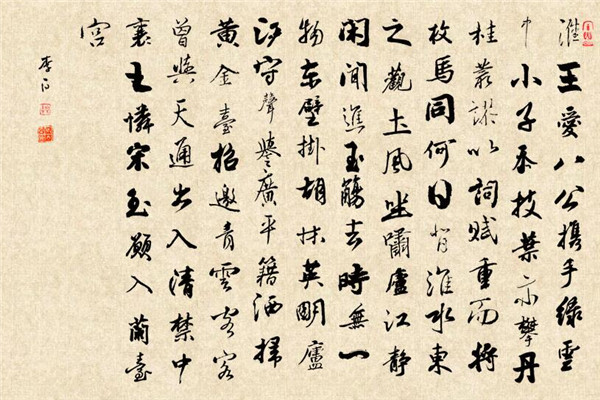 淮王愛八公攜手綠雲
中小子忝枝葉亦攀丹
桂叢謬以詞賦重而將
枚馬同何日背淮水東
之觀土風坐嘯廬江靜
閑聞進玉觴去時無一
物東壁掛胡床英明廬
江守聲譽廣平籍洒掃
黃金臺招邀青雲客客
曾與天通出入清禁中
襄王憐宋玉願入蘭臺
宮
李白